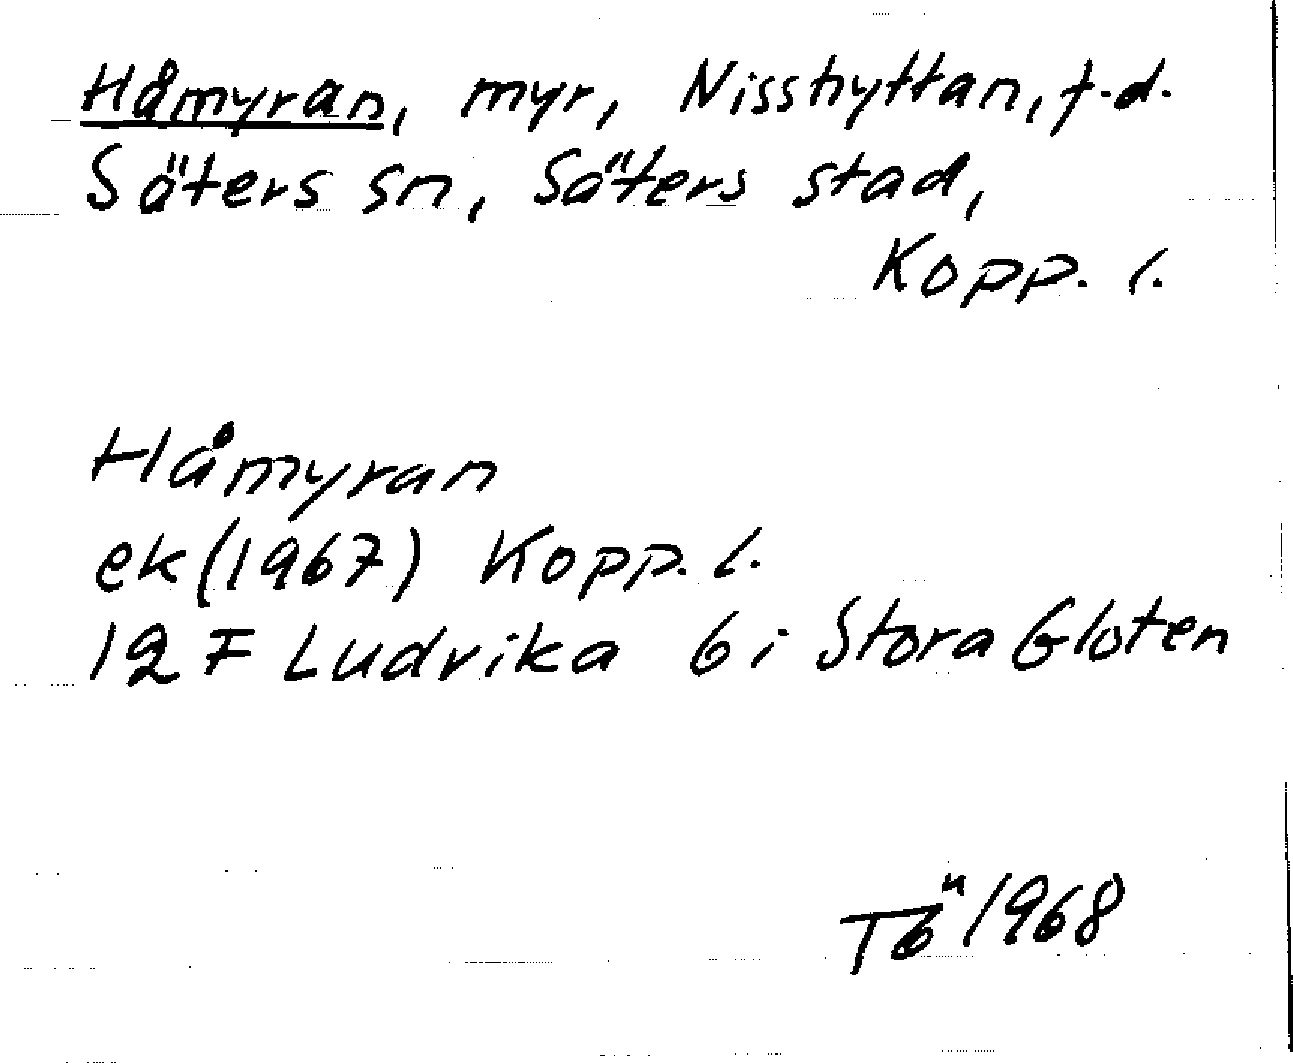 Håmyran, myr, Nisshyttan, f.d.
Säters sn, Säters stad,
Kopp. l.
Håmyran
ek (1967) Kopp. l.
12 F Ludvika 6 i Stora Gloten
Tö 1968